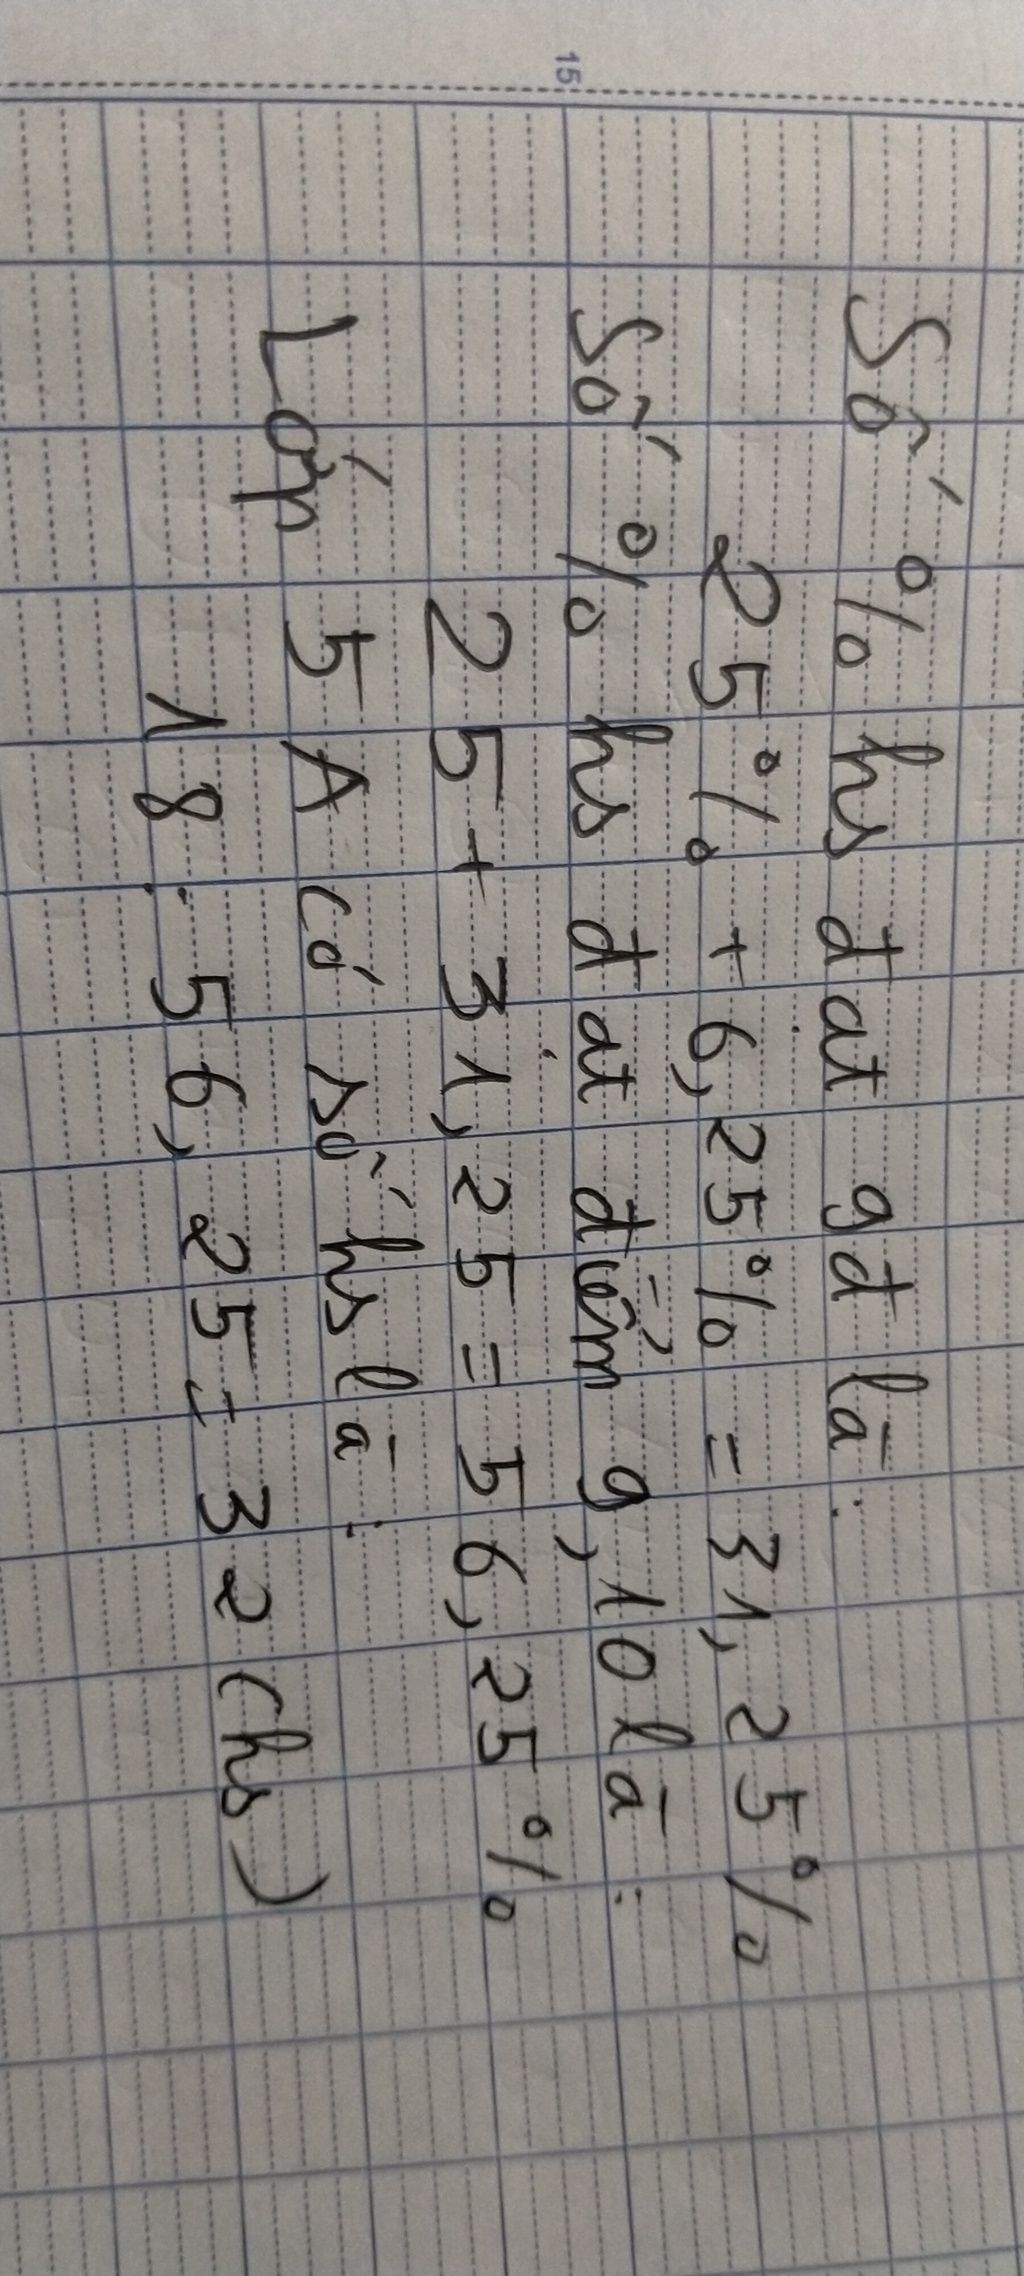 Số % hs đạt 9đ là:
25% + 6,25% = 31,25%
Số % hs đạt điểm 9,10 là:
25 + 31,25 = 56,25%
Lớp 5A có số hs là:
18 : 56,25 = 32 (hs)
15